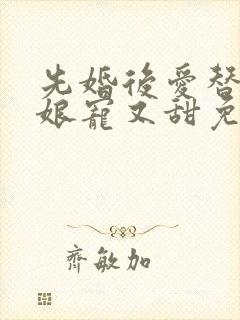 先婚後愛替
娘寵又甜免
齊敏加